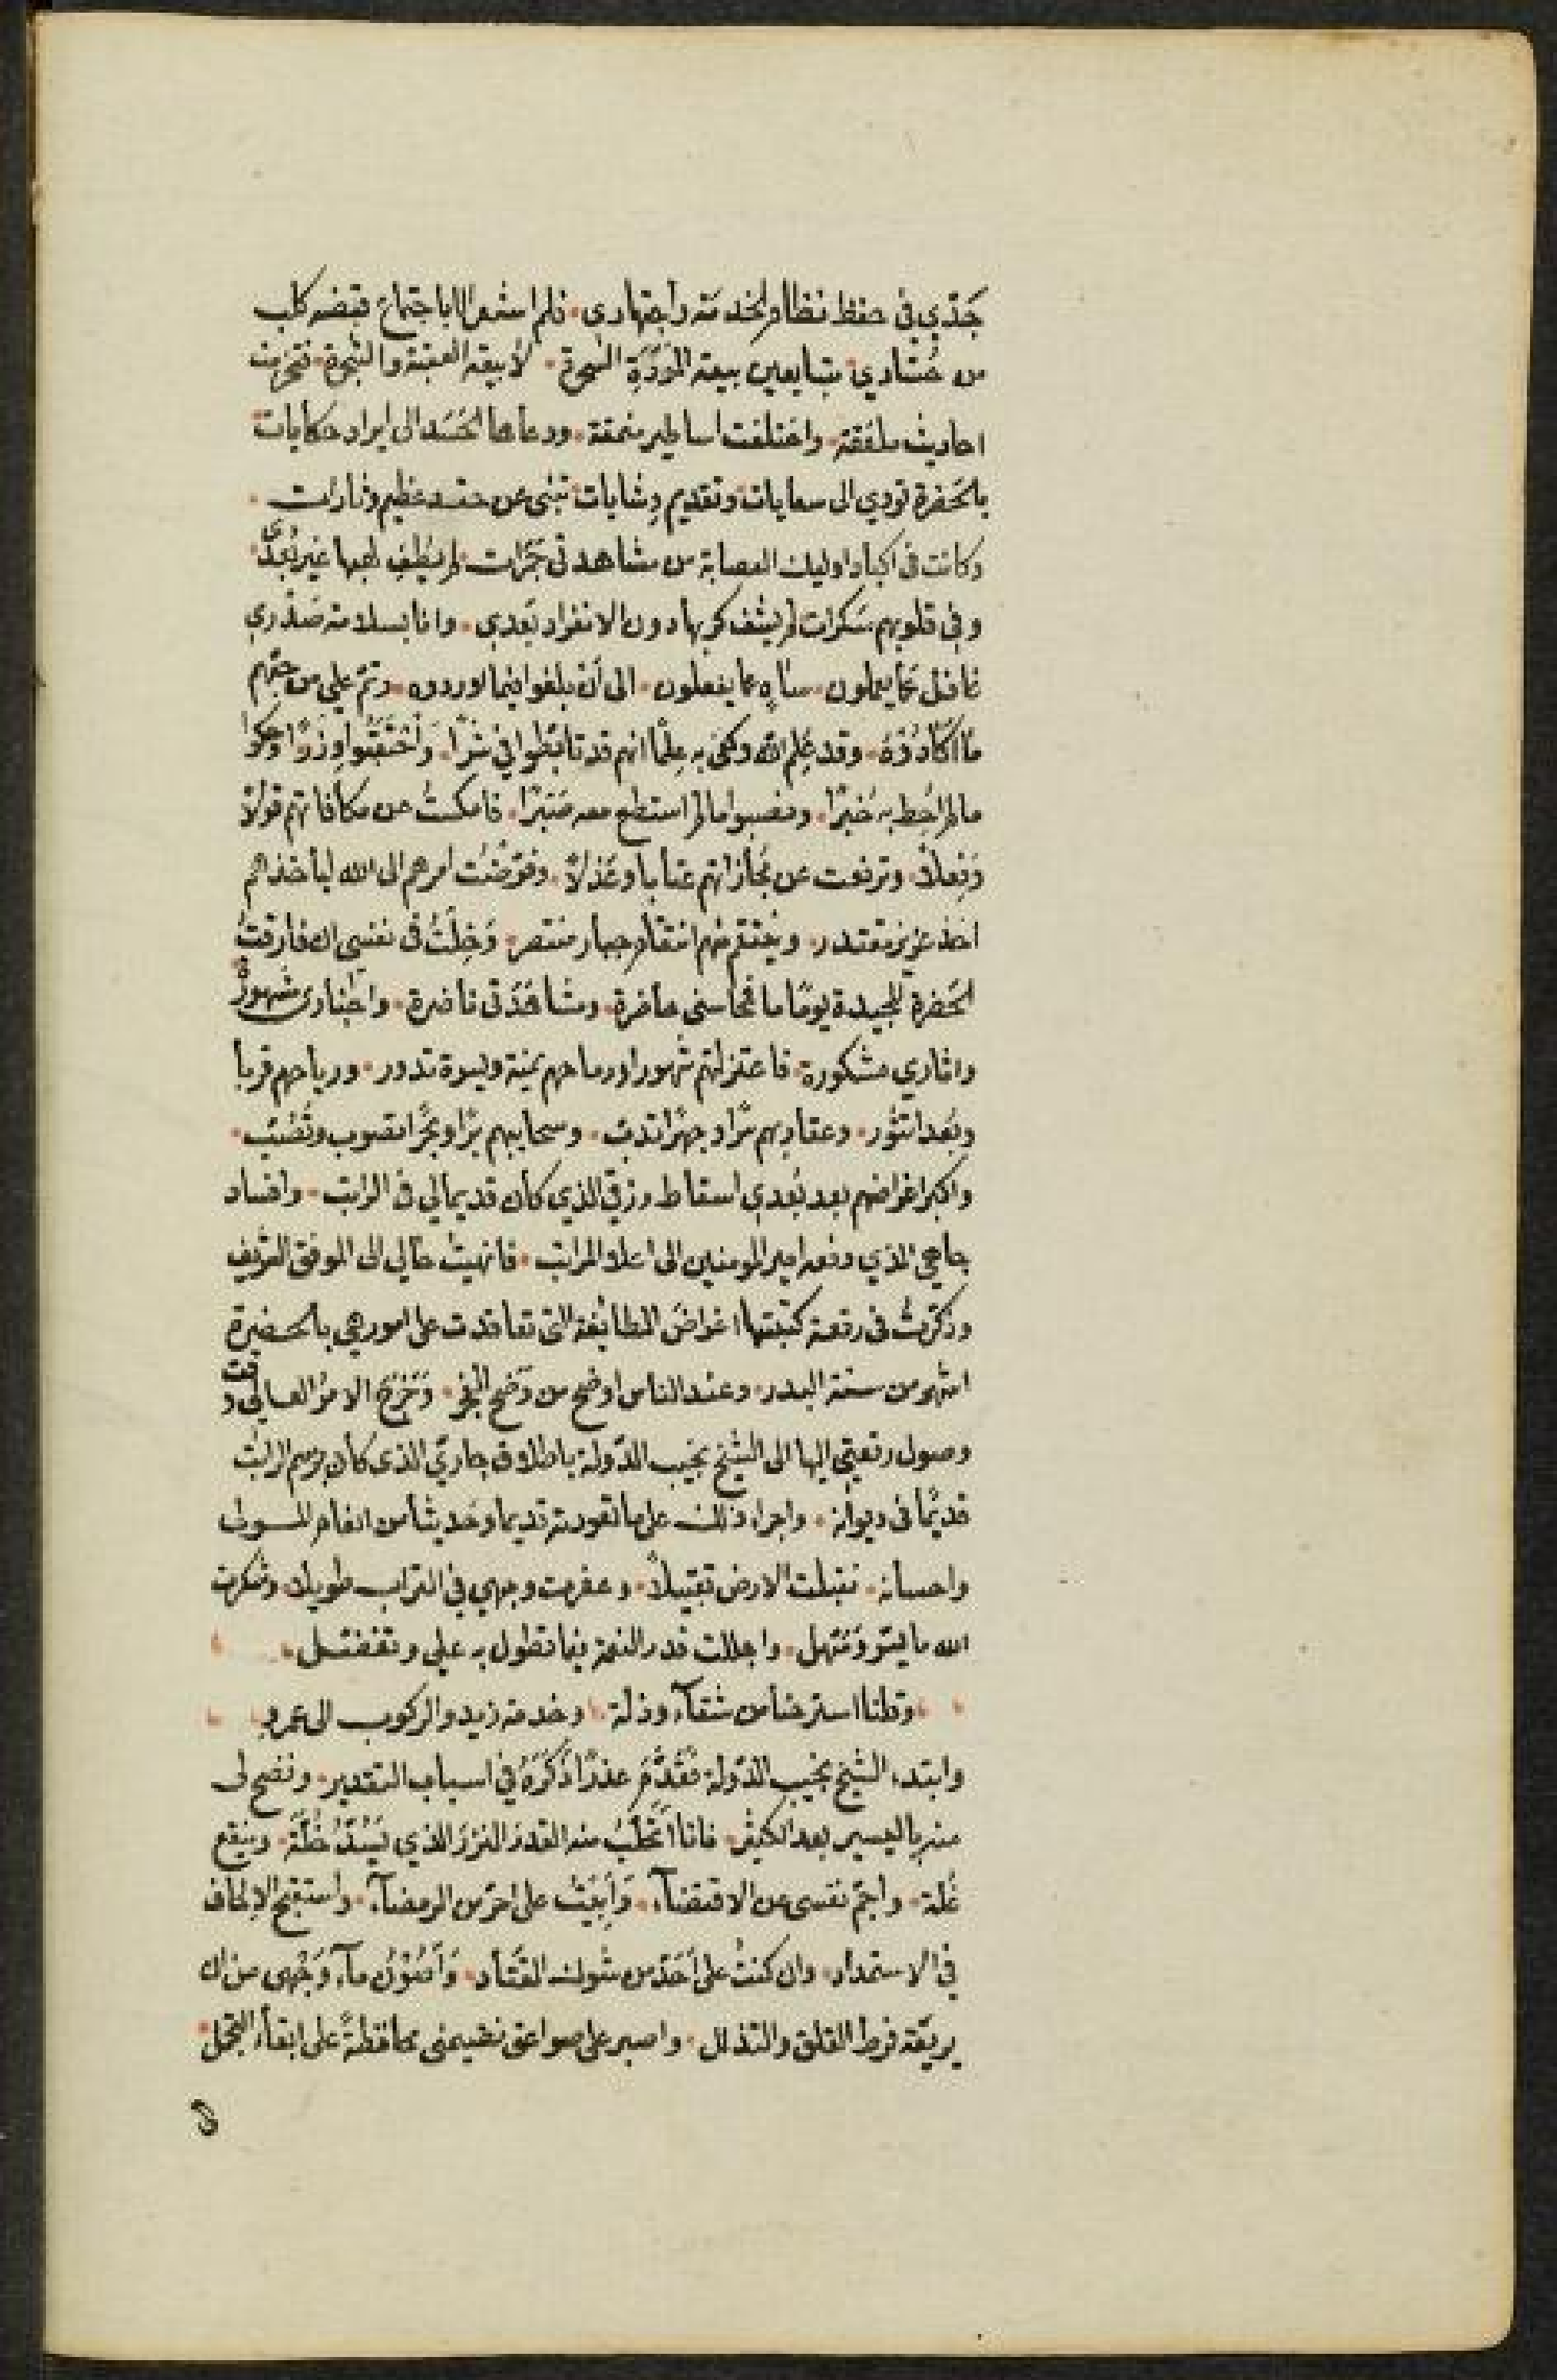 جَدّي في حفظ نظام الخدمة واجتهادى فلم اشعر الا باجتماع قبضه كلب
من حُسّادي متبايعين بيعة المَوَدَّةِ الشجرة لا بيعة العقبة والشجرة فتخرصت
احاديث ملفقة واختلقت اساطير منمقة ودعاها الحَسَد الى ايراد حكايات
بالحَضرة تودي الى سعايات وتقديم وِشايات تنبى عن حقد عظيم وثارات
وكانت فى اكباد اوليك العصابة من مشاهدتى جَمَرات لم يُطفِ لهبها غير بُعدى
وفي قلوبهم سَكرات لم يشف كربها دون الانفراد بَعدى وانا بسلامة صَدْري
غافل عَمّا يعملون ساهٍ عما يفعلون الى أن بلغوا فيما اوردوه وتم علي من جهتهم
مَا اكادُوْهُ وقد عَلِم الله وكفى به عِلمًا انهم قد تابطوا في شرًا وَاحْتَقَبُوا وِزرًا وحكوا
ما لم احُط به خُبرًا ونصبوا ما لم استطع معه صَبرًا فامسكتُ عن مكافاتهم قولاً
وَفِعلاً وترفعت عن مُجازاتهم عتابا وعَذلاً وفوّضْتُ امرهم الى الله ليأخذهم
اخذ عزيز مقتدر وينتقم منهم انتقام جبار منتصر وَخِلْتُ فى نفسى ان فارقتُ
الحَضرة المجيدة يومًا ما فمحاسنى حاضرة ومشاهَدَتى ناضرة واخبارى مشهورة
واثاري مشكورة فاعتزلتهم شهورا ورماحهم يمنة ويسرة تدور ورياحهم قربا
وبُعدا تثور وعقاربهم سِرًا وجهرًا تدب وسحايبهم برًا وبحرًا تصوب وتُصَبّب
واكبر اغراضهم بعد بُعدي اسقاط رزقى الذي كان قديما لي فى الراتب وافساد
جاهي الذي رفعه امير المومنين الى اعلا المراتب فانهيتُ حالي الى الموقف الشريف
وذكرتُ فى رقعة كتبتها اغراضَ الطائفة التى تعاقدت على امورهى بالحضرة
اشهر من سنة البدر وعند الناس اوضح من وَضَح الفجر وَخَرَجَ الامرُ العالي وقت
وصول رقعتى اليها الى الشيخ نجيب الدّولة باطلاق جاريّ الذى كان برسم الراتب
قديمًا فى ديوانه واجراء ذلك على ما تعودته قديما وحديثا من انعام المسوف
واحسانه فقبلت الارض تقبيلاً وعفرت وجهي في التراب طويلا وشكرت
الله ما يسر وَسَهل واجللت قدر النعمة فيما تطول به علي وتفضل
وقلنا استرحنا من شقآء وذلة وخدمة زيد والركوب الى عمرو
وابتدء الشيخ نجيب الدّولة فقَدَّمَ عذرًا ذكَرَهُ في اسباب التقدير ونضح لى
منه باليسير بعد الكثير فانا اتحَلّبُ منه القدرَ النزرَ الذي يَسُدّ خُلّة وينقع
غُلة واجم نفسى عن الاقتضآء وَأبَيتُ على احرّ من الرمضآء واستقبح الالحاف
في الاستمداد وان كنتُ على أحَدّ من شوك القتاد وَأصُوْنُ مآء وَجْهى من ان
يريقه فرط القلق والتذلل واصبر على صواعق نفسى محافظةً على ابقاء التجمل